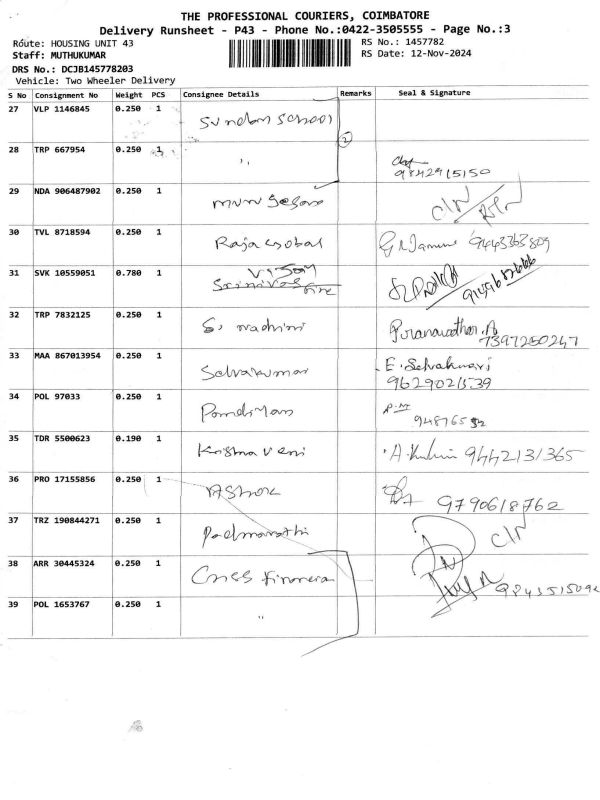 THE PROFESSIONAL COURIERS, COIMBATORE
Delivery Runsheet - P43 - Phone No.:0422-3505555 - Page No.:3
Route: HOUSING UNIT 43
RS No.: 1457782
Staff: MUTHUKUMAR
RS Date: 12-Nov-2024
DRS No.: DCJB145778203
Vehicle: Two Wheeler Delivery
S No Consignment No Weight PCS Consignee Details Remarks Seal & Signature
27 VLP 1146845 0.250 1 school
2
28 TRP 667954 0.250 1 "
9842915150
29 NDA 906487902 0.250 1
C/N
30 TVL 8718594 0.250 1 Rajagobal 9443363809
31 SVK 10559051 0.780 1 Vijay
32 TRP 7832125 0.250 1 S.
7397250247
33 MAA 867013954 0.250 1 Selvakumar E. Selvakumari
9629021539
34 POL 97033 0.250 1 Pandiyan
35 TDR 5500623 0.190 1 Krishnaveni 9442131365
36 PRO 17155856 0.250 1 Ashok 9790618762
37 TRZ 190844271 0.250 1 C/N
38 ARR 30445324 0.250 1
39 POL 1653767 0.250 1 "